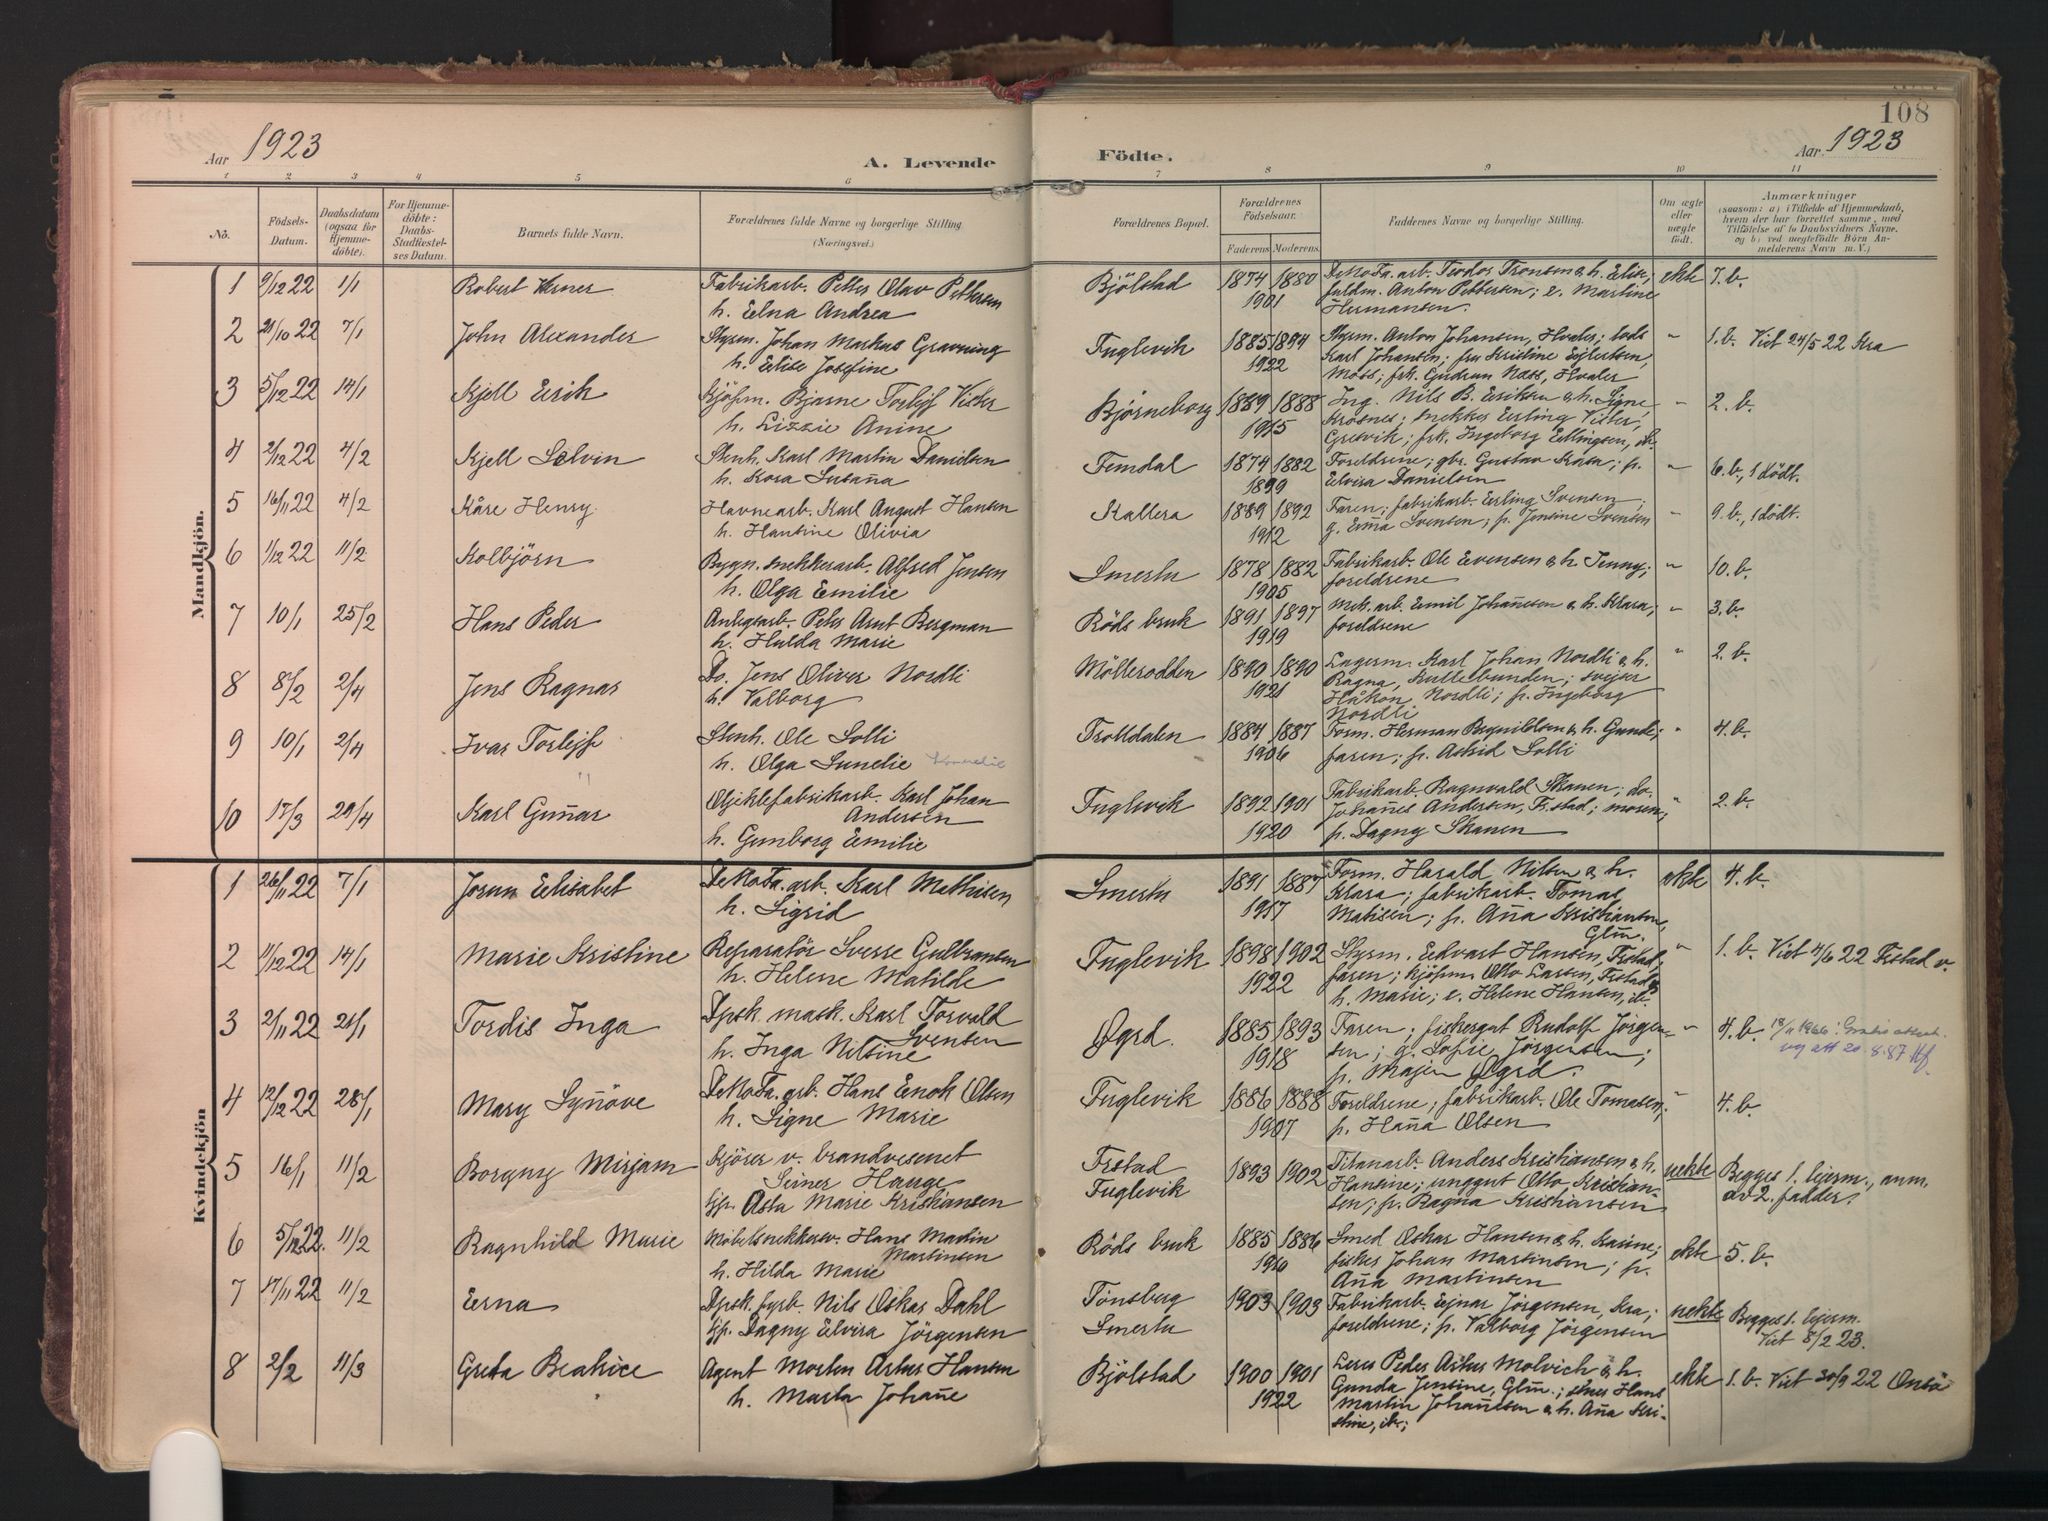 108
Aar 1923
A. Levende
Födte.
Aar 1923
1 2 3 4 5 6 7 8 9 10 11
No.
Födsels-Datum.
Daabsdatum (ogsaa for Hjemmedöbte).
For Hjemmedöbte: Daabs-Stadfæstelses Datum.
Barnets fulde Navn.
Forældrenes fulde Navne og borgerlige Stilling (Næringsvei.)
Forældrenes Bopæl.
Forældrenes Födselsaar.
Faderens Moderens.
Faddernes Navne og borgerlige Stilling.
Om ægte eller uægte födt.
Anmærkninger
(saasom: a) i Tilfælde af Hjemmedaab, hvem der har forrettet samme, med Tilföielse af to Daabsvidners Navne, og b) ved uegtefödte Börn Anmelderens Navn m. V.)
Mandkjön.
1 9/12 22 1/1 Robert Verner
Fabrikarb. Petter Olav Pettersen
h. Elna Andrea
Bjölstad 1874 1880
1901
DeNoFa. arb. Teodor Tronsen & h. Elise;
fuldm. Anton Pettersen; e. Martine
Hermansen.
ekte 7. b.
2 21/10 22 7/1 John Alexander
Styrm. Johan Markus Gravning
h. Elise Josefine
Fuglevik 1885 1894
1922
Styrm. Anton Johansen, Hvaler; lods
Karl Johansen; fru Kristine Ejlertsen,
Moss; frk. Gudrun Næss, Hvaler
" 1. b. Viet 24/5 22 Kra
3 5/12 22 14/1 Kjell Erik
Kjöpm. Bjarne Torlejf Vister
h. Lizzie Anine
Björneborg 1889 1888
1915
Ing. Nils B. Eriksen & h. Signe
Krosnes; snekker Erling Vister,
Gresvik; frk. Ingeborg Ellingsen,
" 2. b.
4 2/12 22 4/2 Kjell Selvin
Stenh. Karl Martin Danielsen
h. Kora Susanna
Femdal 1874 1882
1899
Foreldrene; gbr. Gustav Kasa; p.
Elvira Danielsen
" 6. b., 1 dödt.
5 16/11 22 4/2 Kåre Henry
Havnearb. Karl August Hansen
h. Hansine Olivia
Kallera 1889 1892
1912
Faren; fabrikarb. Erling Svensen;
g. Emma Svensen; p. Jensine Svensen
" 9. b., 1 dödt.
6 1/12 22 11/2 Kolbjörn
Bygn. snekkerarb. Alfred Jensen
h. Olga Emilie
Smertu 1878 1882
1905
Fabrikarb. Ole Evensen & h. Jenny;
foreldrene
" 10. b.
7 10/1 25/2 Hans Peder
Anlegsarb. Peter Arnt Bergman
h. Hulda Marie
Röds bruk 1891 1897
1919
Mek. arb. Emil Johannesen & h. Klara;
foreldrene
" 3. b.
8 8/2 2/4 Jens Ragnar
Do. Jens Oliver Nordli
h. Valborg
Möllerodden 1890 1890
1921
Lagerm. Karl Johan Nordli & h.
Ragna, Kullebunden; svejser
Håkon Nordli; p. Ingeborg
Nordli
" 2. b.
9 10/1 2/4 Ivar Torlejf
Stenh. Ole Solli
h. Olga Sunelie
Trolldalen 1884 1887
1906
Form. Herman Bryniildsen & h. Gunde;
faren; p. Astrid Solli
" 4. b.
10 17/3 29/4 Karl Gunnar
Oljeklefabrikarb. Karl Johan
Andersen
h. Gunborg Emilie
Fuglevik 1892 1901
1920
Fabrikarb. Ragnvald Skanen; do.
Johannes Andersen, Frstad; moren;
p. Dagny Skanen
" 2. b.
Kvindekjön
1 26/11 22 7/1 Jorun Elisabet
DeNoFa. arb. Karl Mathisen
h. Sigrid
Smertu 1891 1887
1917
Form. Harald Nilsen & h.
Klara; fabrikarb. Tomas
Matisen; p. Anna Kristiansen,
Glm.
ekte 4. b.
2 11/12 22 14/1 Marie Kristine
Reparatör Sverre Gulbransen
h. Helene Matilde
Fuglevik 1898 1902
1922
Styrm. Edvart Hansen, Frstad;
faren; kjöpm. Otto Larsen, Frstad &
h. Marie; e. Helene Hansen, ib.
" 1. b. Viet 4/6 22 Frstad v.
3 2/11 22 21/1 Tordis Inga
Dpsk. mask. Karl Torvald
Svensen
h. Inga Nilsine
Øgrd 1885 1893
1918
Faren; fiskergut Rudolf Jörgen-
sen; g. Sofie Jörgensen;
p. Majen Øgrd.
" 4. b.
4 12/12 22 28/1 Mary Synnöve
DeNoFa. arb. Hans Enok Olsen
h. Signe Marie
Fuglevik 1886 1888
1907
Foreldrene; fabrikarb. Ole Tomasen;
p. Hanna Olsen
" 4. b.
5 16/1 11/2 Borgny Mirjam
Kjörer v. brandvesenet
Einer Hauge
Asta Marie Kristiansen
Frstad
Fuglevik
1893 1902
Titanarb. Anders Kristiansen & h.
Hansine; unggut Otto Kristian-
sen; p. Ragna Kristiansen
uekte Begges 1. lejerm., anm.
av 2. fadder.
6 5/12 22. 11/2 Ragnhild Marie
Möbelsnekkersv. Hans Martin
Martinsen
h. Hilda Marie
Röds bruk 1885 1886
1910
Smed Oskar Hansen & h. Karine;
fisker Johan Martinsen; p.
Anna Martinsen
ekte 5. b.
7 17/11 22 11/2 Erna
Dpsk. fyrb. Nils Oskar Dahl
Dagny Elvira Jörgensen
Tönsberg
Smertu
1903 1903
Fabrikarb. Ejnar Jörgensen, Kra;
foreldrene; p. Valborg Jörgensen
uekte Begges 1. lejerm.
Viet 8/2 23.
8 2/2 11/3 Greta Beatrice
Agent Morten Asbus Hansen
h. Marta Johanne
Bjölstad 1900 1901
1922
Peder Asbus Molvich & h.
Gunda Jensine, Glm.; Hans
Martin Johannesen & h. Anna Kri-
stine, ib.;
ekte 1. b. Viet 30/9 22 Onsö